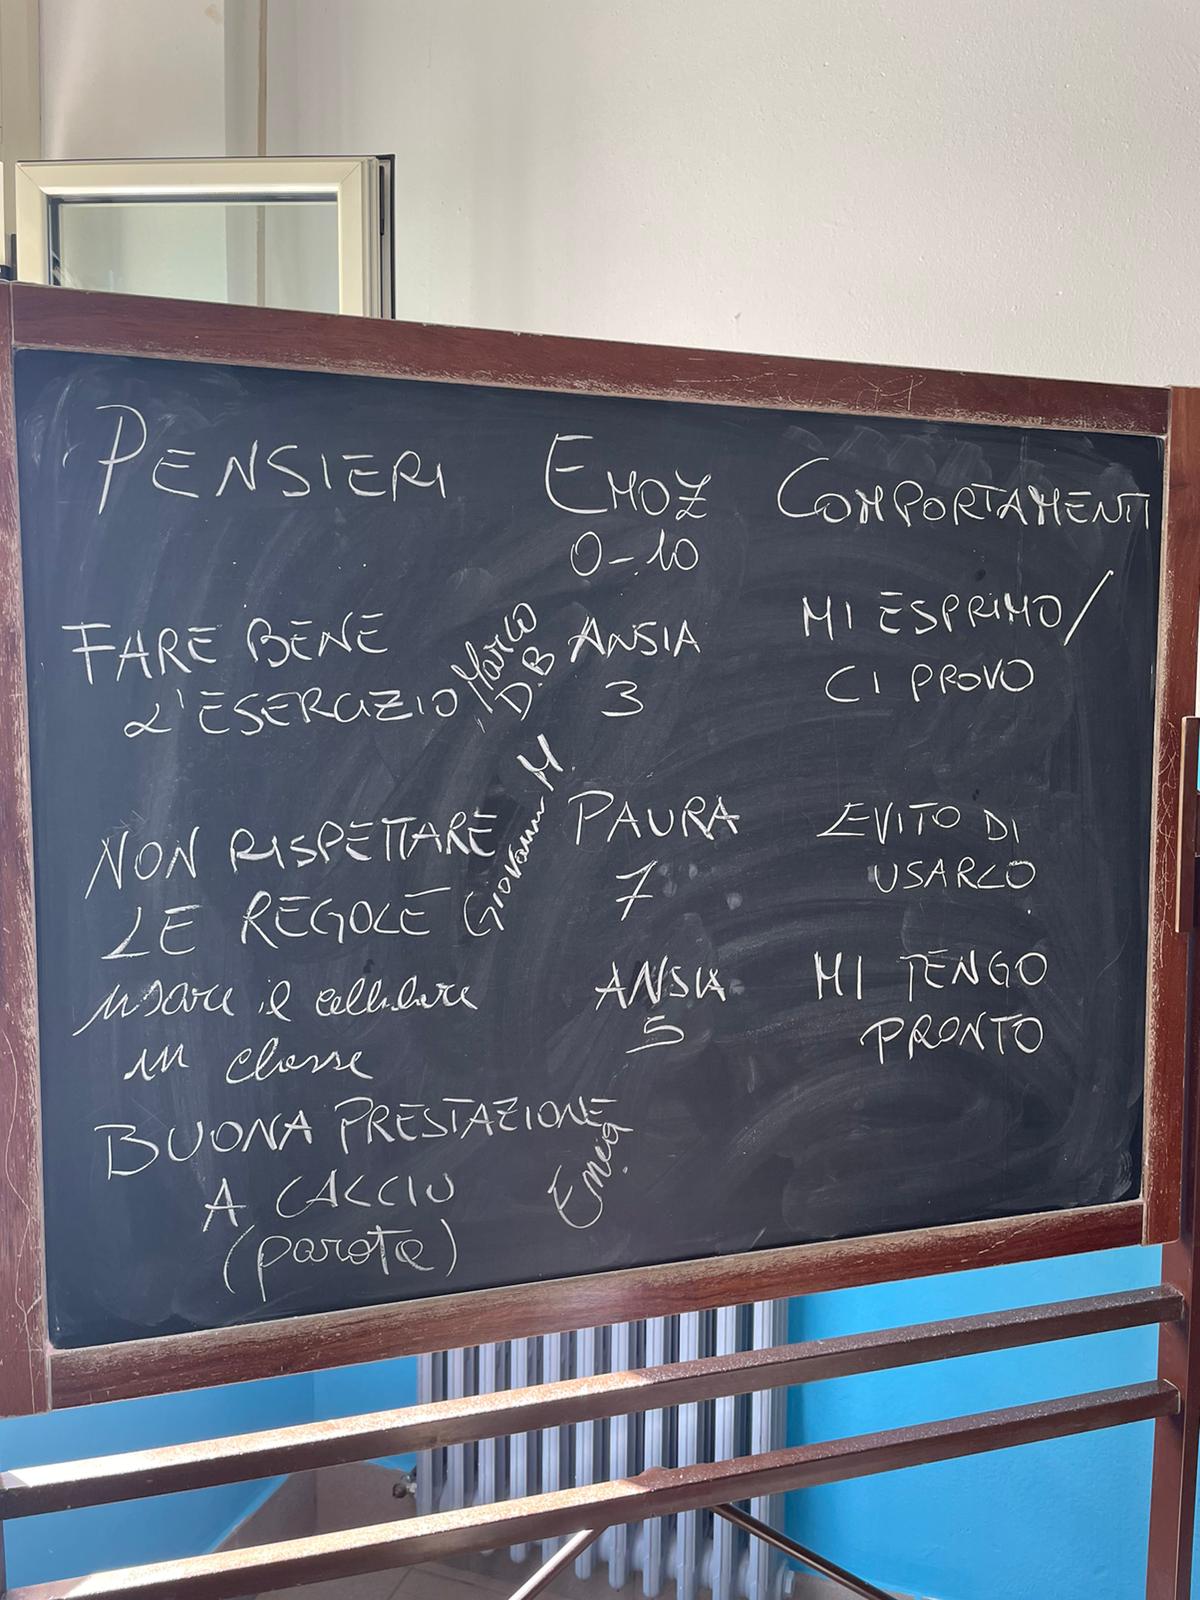 PENSIERI EMOZ COMPORTAMENTI
0-10
FARE BENE Marco ANSIA MI ESPRIMO/
L'ESERCIZIO D.B 3 CI PROVO
NON RISPETTARE Giovanni M. PAURA EVITO DI
LE REGOLE 7 USARLO
usare il cellulare ANSIA MI TENGO
in classe 5 PRONTO
BUONA PRESTAZIONE
A CALCIO
(parata)